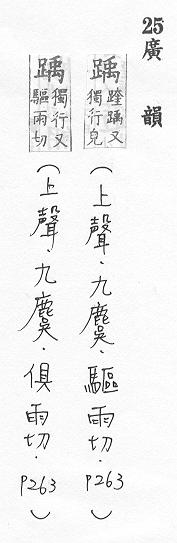 25廣韻
踽踽踽又獨行皃
(上聲.九麌.驅雨切.P263)
踽獨行又驅雨切
(上聲.九麌.俱雨切.P263)